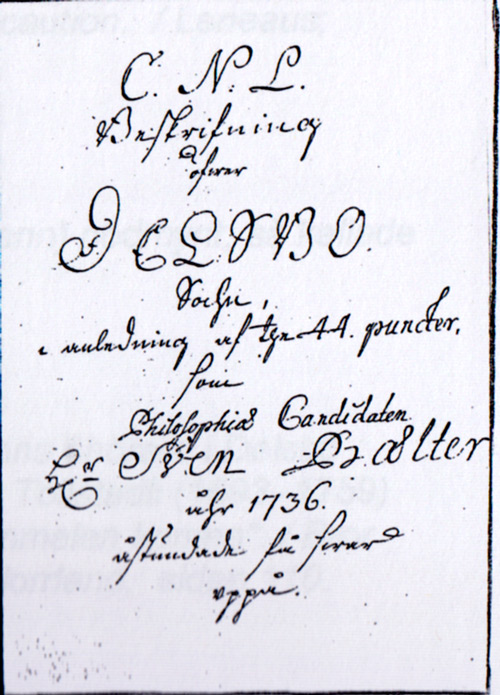 C. N. L.
Beskrifning
öfwer
JELSWO
Sochn,
i anledning af the 44. puncter,
som
Philosophiæ Candidaten
Hr Sven Bælter
åhr 1736.
åstundade swar
uppå.